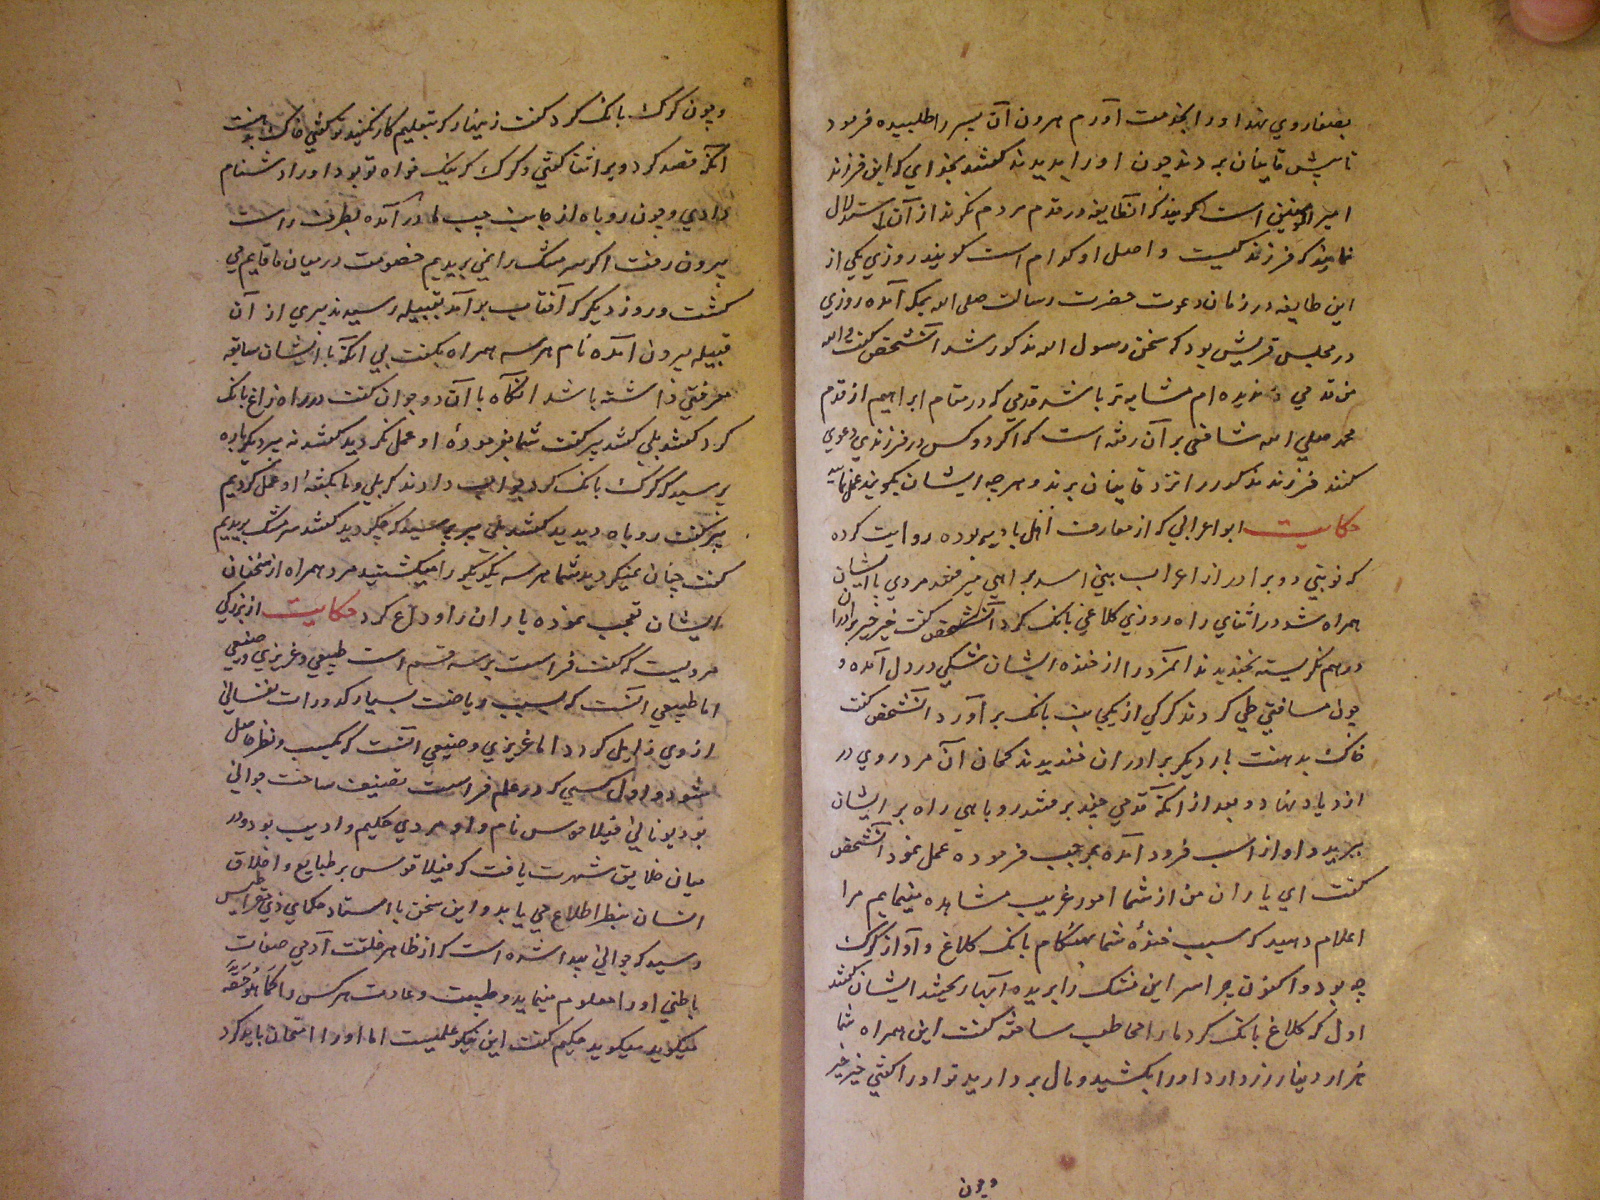 بصفاروی نهد اورا بخدمت آورم هرون آن پسر را طلبیده فرمود
تا پیش قایفان بردند چون اورا بدیدند گفتند بخدای که این فرزند
امیر المؤمنین است گویند که آنطایفه در قدم مردم نگرند از آن استدلال
نمایند که فرزند کیست و اصل او کدام است گویند روزی یکی از
این طایفه در زمان دعوت حضرت رسالت صلی الله بمکه آمده روزی
در مجلس قریش بود که سخن رسول الله مذکور شد آنشخص گفت والله
من قدمی ندیده ام مشابه تر باشد قدمی که در مقام ابراهیم از قدم
محمد صلی الله شافعی بر آن رفته است که اگر دو کس در فرزندی دعوی
کنند فرزند مذکور را نزد قایفان برند و هرچه ایشان بگویند عمل نمایند
حکایت ابو اعرابی که از معارف اهل بادیه بوده روایت کرده
که نوبتی دو برادر از اعراب بنی اسد براهی میرفتند مردی با ایشان
همراه شد در اثنای راه روزی کلاغی بانک کرد آنشخص گفت خیر خیر برادران
در هم نگریسته بخندیدند آنمرد را از خنده ایشان شکی در دل آمده و
چون مسافتی طی کردند گرگی از یکجانب بانک برآورد آنشخص گفت
خاک بدهنت بار دیگر برادران خندیدند گمان آن مرد روی در
ازدیاد نهاد و بعد از آنکه قدمی چند برفتند روباهی راه بر ایشان
ببرید و او از اسب فرود آمده بموجب فرموده عمل نمود آنشخص
گفت ای یاران من از شما امور غریب مشاهده مینمایم مرا
اعلام دهید که سبب خنده شما بهنگام بانک کلاغ و آواز گرگ
چه بود و اکنون چرا سر این مشک را بریده آبها ریختید ایشان گفتند
اول که کلاغ بانک کرد مارا مخاطب ساخته گفت این همراه شما
هزار دینار زر دارد اورا بکشید و مال بردارید تو اورا گفتی خیر خیر
وچون
وچون گرگ بانک کرد گفت زینهار که بتعلیم کار نکنید تو گفتی خاک بدهنت
آنکه قصد کرد ویرا تفا گفتی و گرگ که نیک خواه تو بود اورا دشنام
دادی وچون روباه از جانب چپ ما در آمده بطرف راست
بیرون رفت اگر سر مشک را نمی بریدیم خصومت درمیان ما قایم می
گشت و روز دیگر که آفتاب بر آمد بقبیله رسیدند پیری از آن
قبیله بیرون آمده نام هر سه همراه بگفت بی آنکه با ایشان سابقه
معرفتی داشته باشد آنگاه با آن دو جوان گفت در راه زاغ بانک
کرد گفتند بلی گفت شما بفرموده او عمل نکردید گفتند نه پیر دیگرباره
پرسید که گرگ بانک کرد جواب دادند که بلی و ما بگفته او عمل کردیم
پیر گفت روباه دیدید گفتند بلی پیر پرسید که چکردید گفتند سر مشک بریدیم
گفت چنان نمیکردید شما هر سه یکدیگر را میکشتید مرد همراه از سخنان
ایشان تعجب نموده یاران را وداع کرد حکایت از بزرگی
مرویست که گفت فراست بر سه قسم است طبیعی و غریزی و صنیعی
اما طبیعی آنست که بسبب ریاضت بسیار کدورات نفسانی
از وی زایل گردد اما غریزی و صنیعی آنست که بکسب و نظر حاصل
شود و اول کسی که در علم فراست تصنیف ساخت جوانی
بود یونانی فیلاموس نام و او مردی حکیم و ادیب بود و در
میان خلایق شهرت یافت که فیلاقوس بر طبایع و اخلاق
انسان بنظر اطلاع می یابد و این سخن با استاد حکمای ذی
رسید که جوانی پیدا شده است که از ظاهر خلقت آدمی صفات
باطنی اورا معلوم مینماید و طبیعت و عادت هر کس را کما هو حقه
میگوید حکیم گفت این نیکو علمیست اما اورا امتحان باید کرد